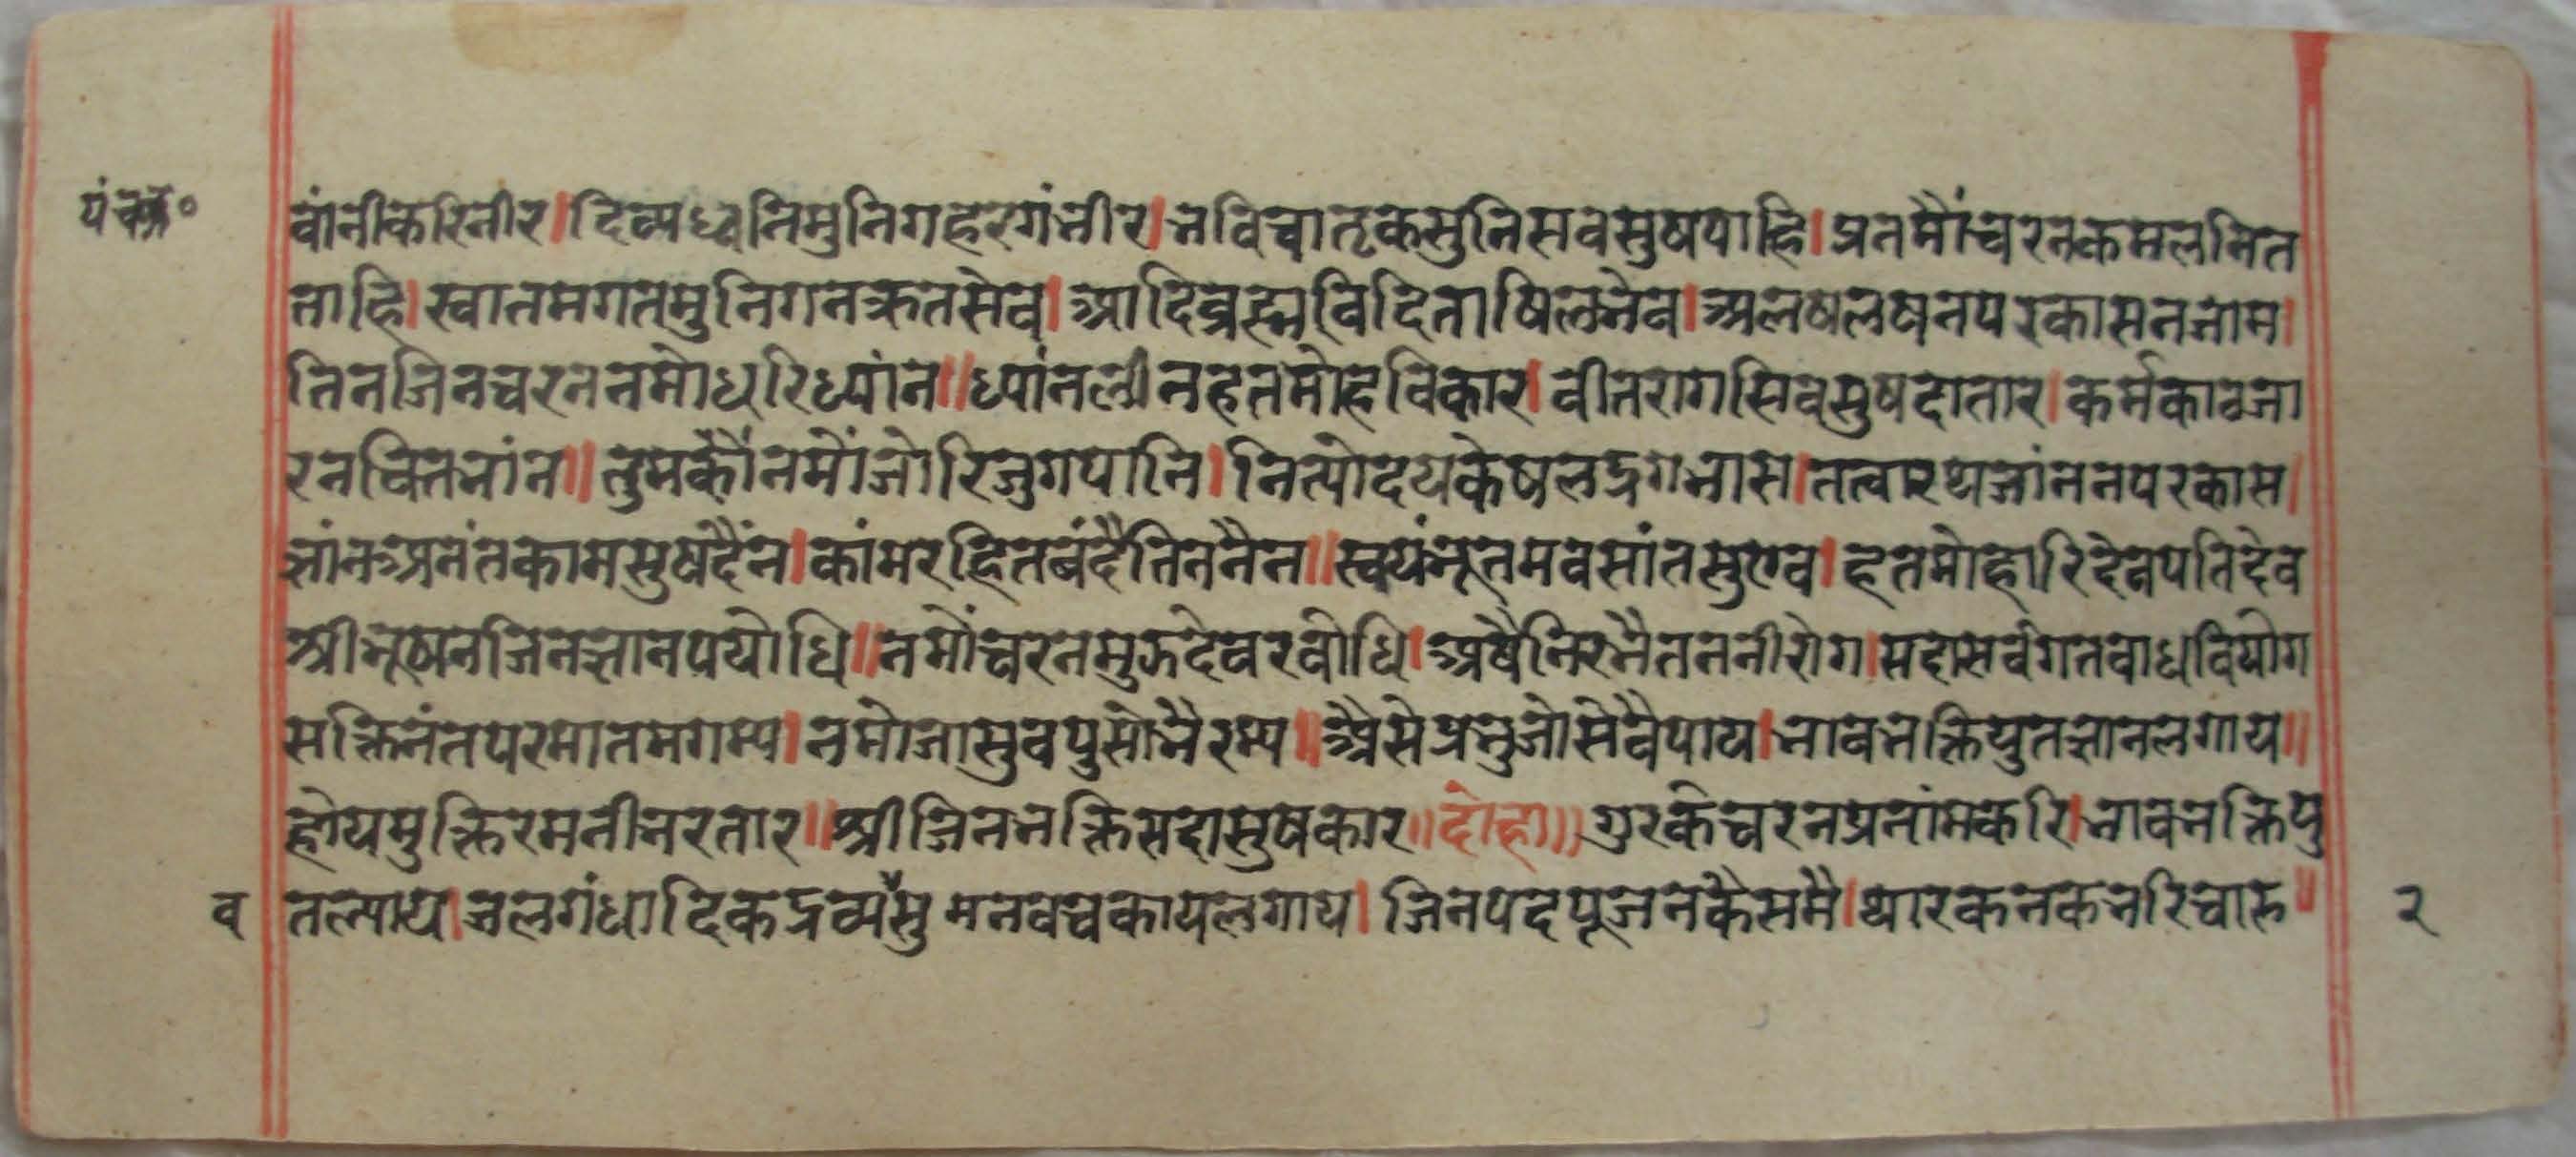 वांनीकरिनीर।दिव्यध्वनिमुनिगहरगंभीर।भविचातृकसुनिसवसुषपाहि।प्रनमौंचरनकमलनित
ताहि।स्वातमगतमुनिगनक्रतसेव।आदिब्रह्मविदिताषिलभेव।अलषलषनपरकासनभाम।
तिनजिनचरननमोधरिध्यांन॥ध्यांनलीनहतमोहविकार।वीतरागसिवसुषदातार।कर्मकाठजा
रन नांन॥तुमकौंनमोंजोरिजुगपानि।नित्योदयकेषलद्रगभास।तत्वारथजांननपरकास।
ज्ञांनअनंतकामसुषदैंन।कांमरहितबंदैतिननैन॥स्वयंभूतमवसांतसुएव।हतमोहारिदेवपतिदेव
श्रीभूषनजिनज्ञानपयोधि॥नमोंचरनमुऊदेवरवोधि।अषैनिरभैतननीरोग।महासर्वगतवाधवियोग
सक्तिनंतपरमातमगम्य।नमोजासुवपुसोभैरम्य॥औसेप्रभुजोसेवैपाय।भावभक्तियुतज्ञानलगाय॥
होयमुक्तिरमनीभरतार॥श्रीजिनभक्तिसदासुषकार॥दोहा॥गुरकेचरनप्रनांमकरि।भावभक्तियु
व तल्याय।जलगंधादिकद्रव्यसुं मनवचकायलगाय।जिनपदपूजनकैसमै।थारकनकभरिचारु॥ २